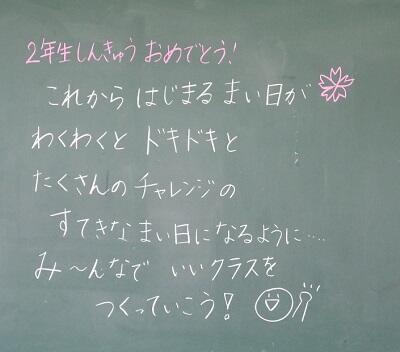 2年生しんきゅう おめでとう!
これから はじまる まい日が
わくわくと ドキドキと
たくさんの チャレンジの
すてきな まい日に なるように……
み〜んなで いいクラスを
つくっていこう!